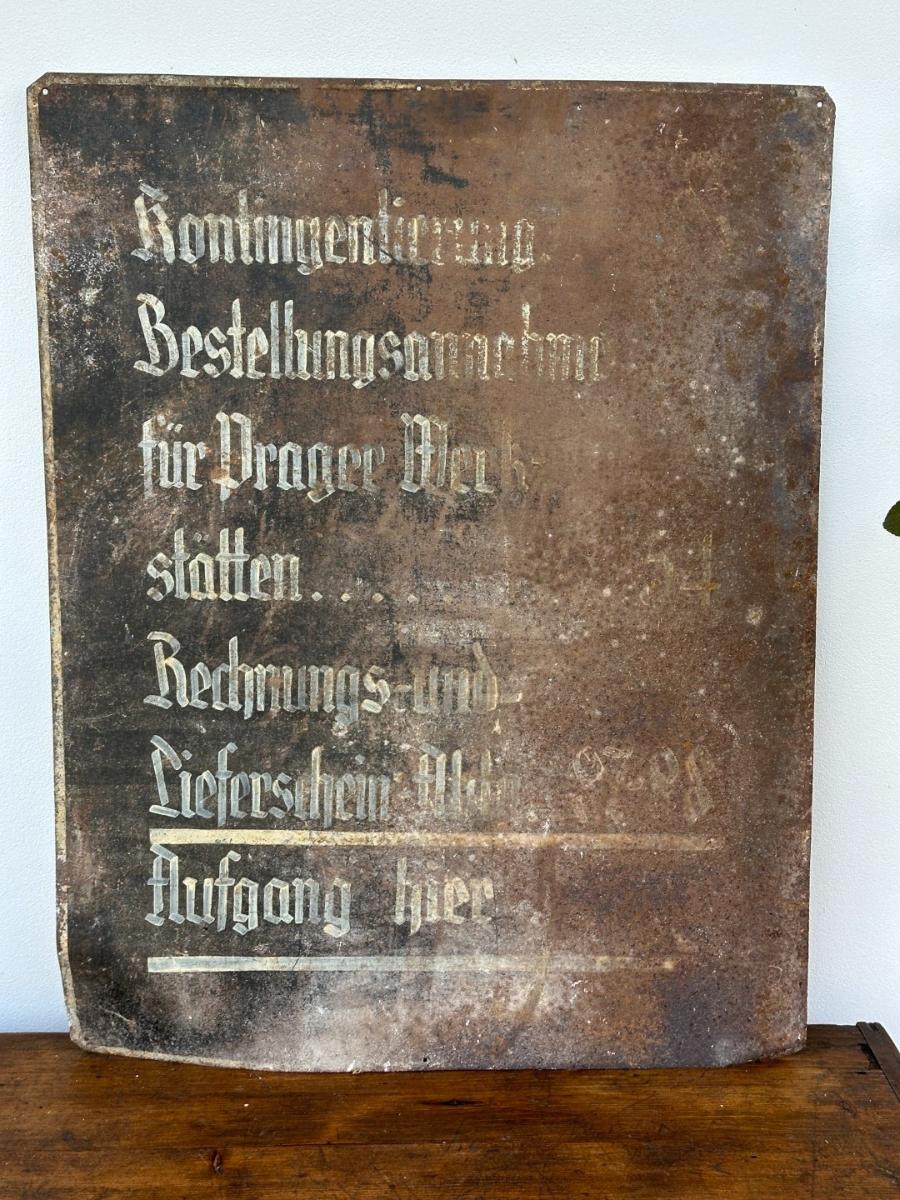 Kontingentierung
Bestellungsannahme
für Prager Werk-
stätten......54
Rechnungs- und
Lieferschein
Aufgang hier